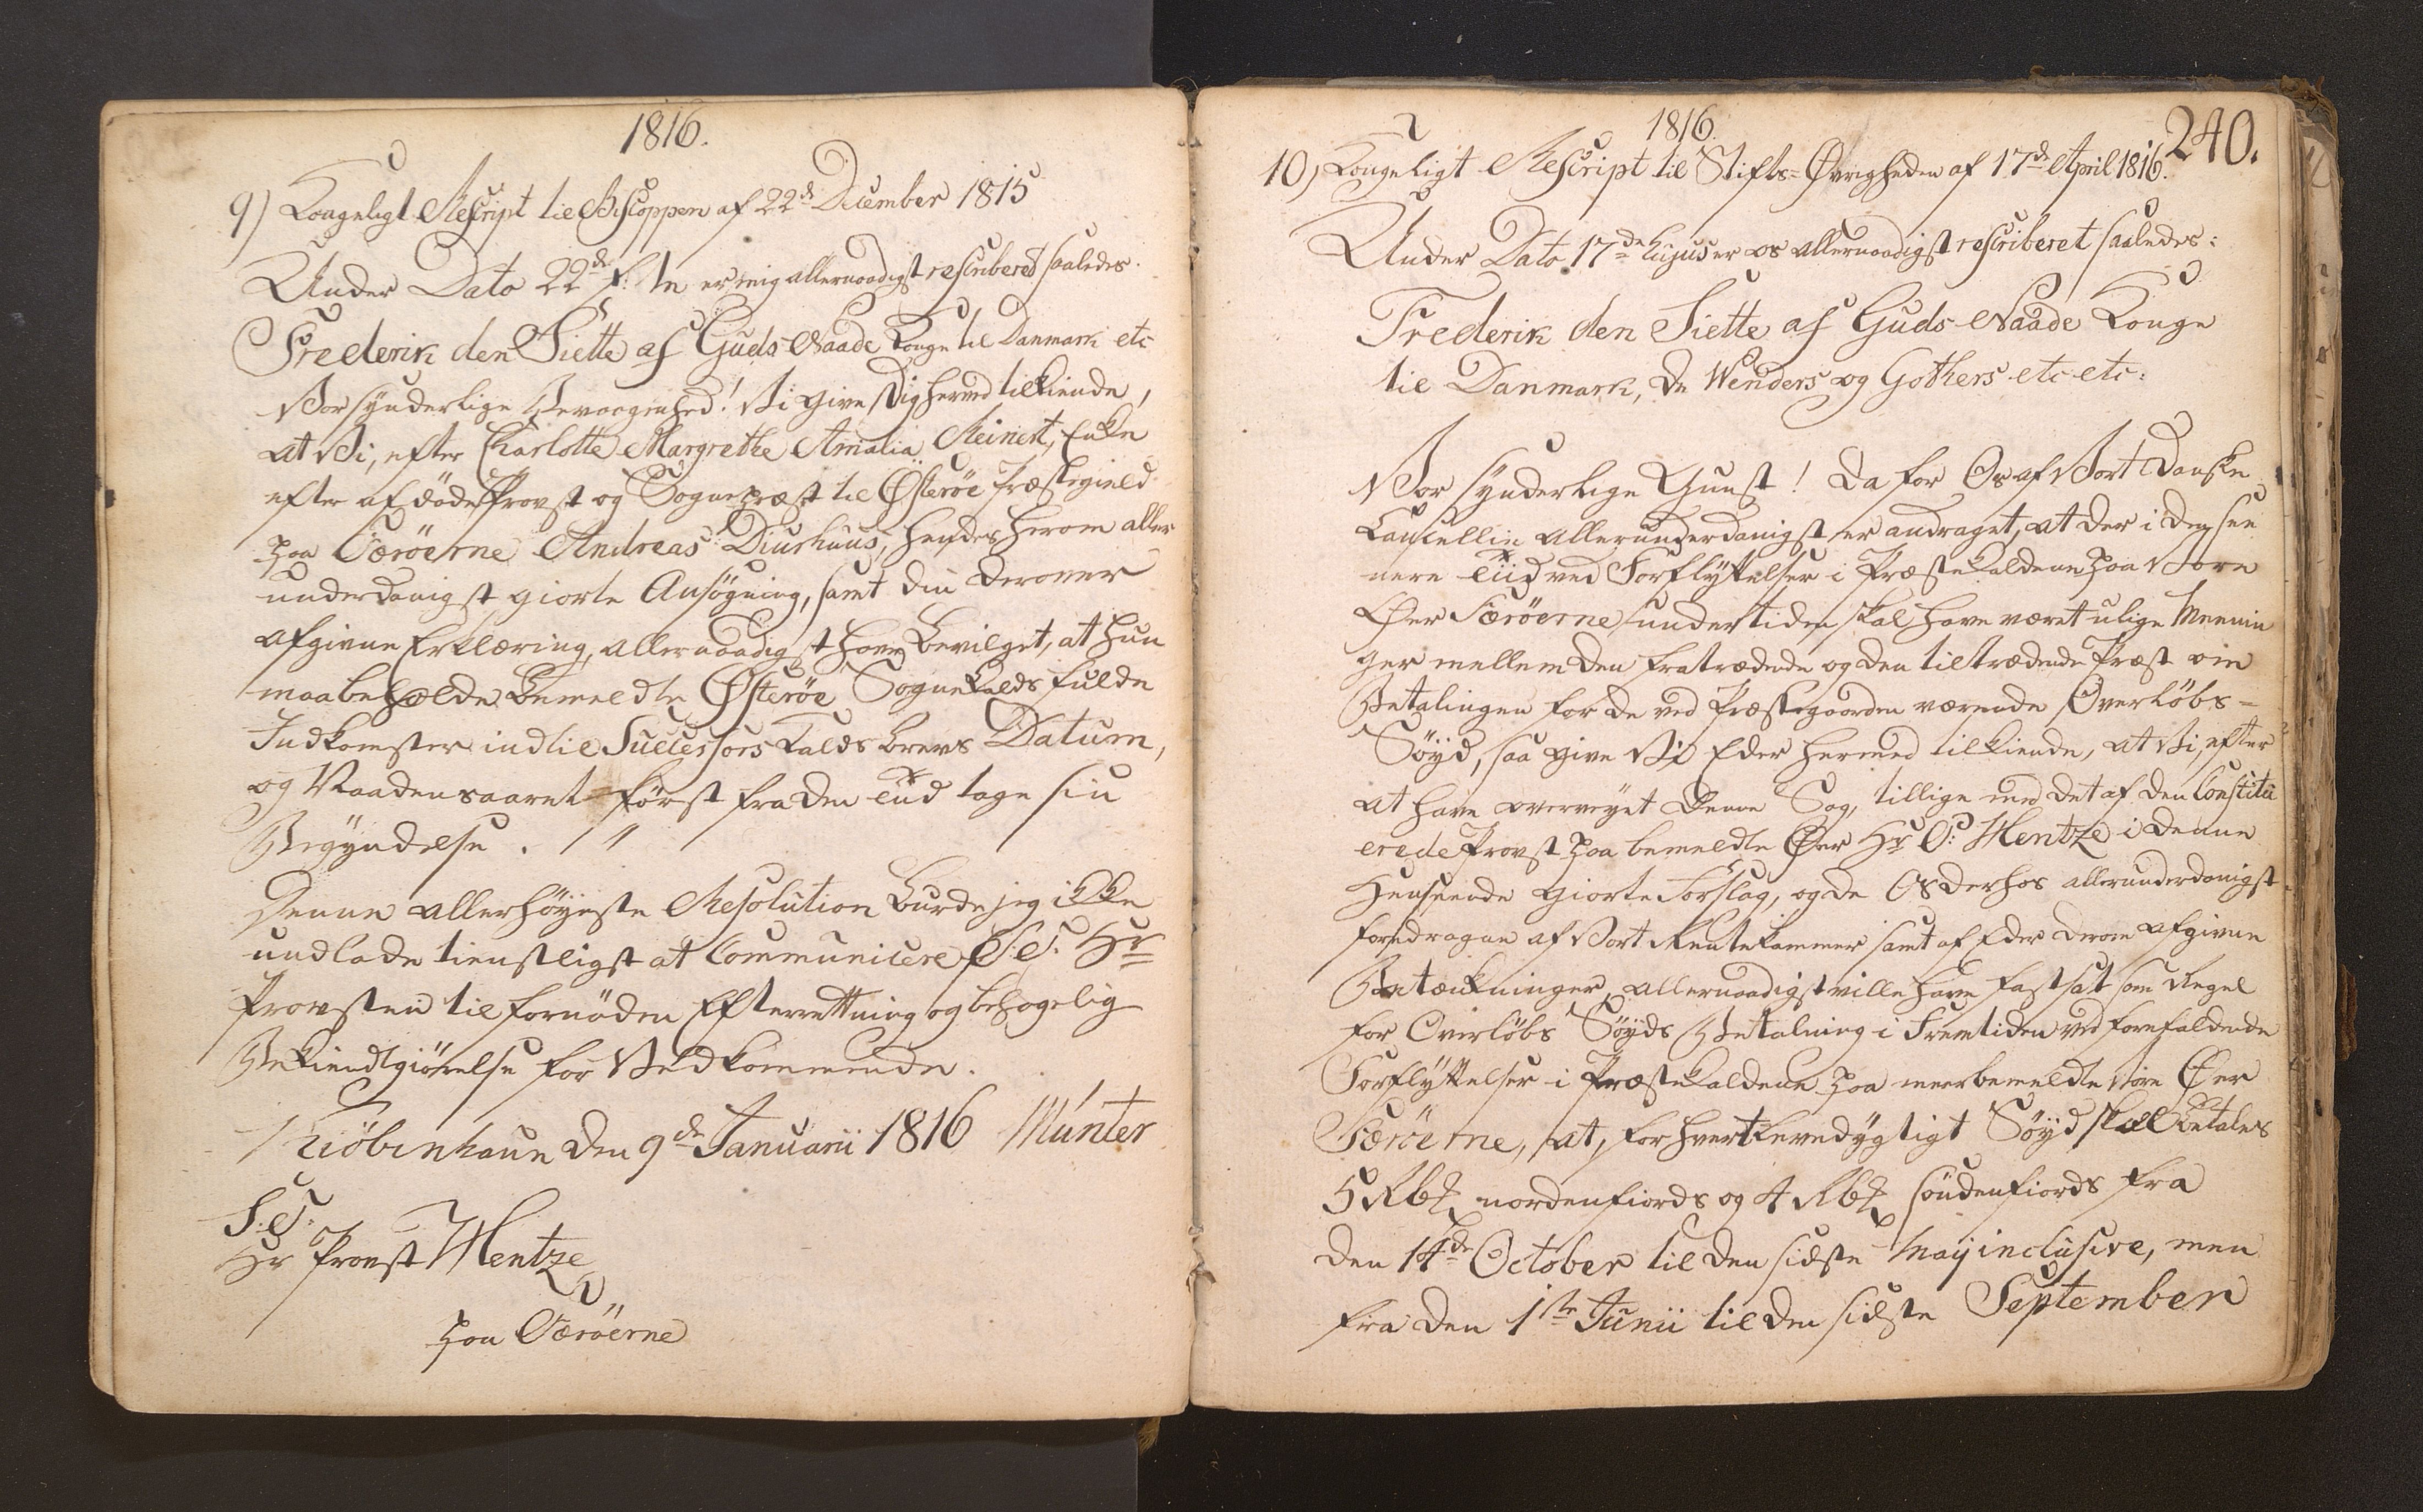 1816.
9) Kongeligt Rescript til Biscoppen af 22de December 1815
Under Dato 22de f: M er mig allernaadigst rescriberet saaledes.
Frederik den Siette af Guds Naade Konge til Danmark etc
Vor synderlige Bevaagenhed! Vi give Dig hermed tilkiende,
at Vi, efter Charlotte Margrethe Amalia Reinert, Enke
efter afdöde Provst og Sognepræst til Østeröe Præstegield
paa Færöerne Andreas Diurhuus, hendes herom aller
underdanigst giorte Ansögning, samt din derover
afgivne Erklæring, allernaadigst have bevilget, at hun
maa beholde bemeldte Østeröe Sognekalds fulde
Indkomster indtil Successors Kalds brevs Datum,
og Naadensaaret först fra den Tiid tage sin
Begyndelse. "
Denne allerhöyeste Resolution burde jeg ikke
undlade tienstligst at Communicere S: T: Hr
Provsten til fornöden Efterrettning og behagelig
Bekiendtgiörelse for Vedkommende.
Kiöbenhavn den 9de Januarii 1816 Münter
S: T:
Hr Provst Hentze
paa Færöerne
1816.
240.
10) Kongeligt Rescript til Stifts-Øvrigheden af 17de April 1816.
Under Dato 17de hujus er os allernaadigst rescriberet saaledes:
Frederik den Siette af Guds Naade Konge
til Danmark, de Wenders og Gothers etc etc:
Vor synderlige Gunst! Da for Os af Vort Danske
Cancellie allerunderdanigst er andraget, at der i den see
nere Tiid ved Forflyttelser i Præstekaldene paa Vore
Øer Færöerne undertiden skal have været ulige Meenin
ger mellem den fratrædende og den tiltrædende Præst om
Betalingen for de ved Præstegaarden værende Overlöbs-
Söyd, saa give Vi Eder hermed tilkiende, at Vi, efter
at have overveyet denne Sag, tillige med det af den Constitu
erede Provst paa bemeldte Øer Hr P: Hentze i denne
Henseende giorte Forslag, og de Os derhos allerunderdanigst
foredragne af Vort Rentekammer samt af Eder derom afgivne
Betænkninger, allernaadigst ville have fastsat som Regel
for Overlöbs Söyds Betalning i Fremtiden ved forefaldende
Forflyttelser i Præstekaldene paa meerbemeldte Vore Øer
Færöerne, at, for hvert levedygtigt Söyd skal betales
5 Rbd nordenfiords og 4 Rbd söndenfiords fra
den 14de October til den sidste Maij inclusive, men
fra den 1ste Junii til den sidste September